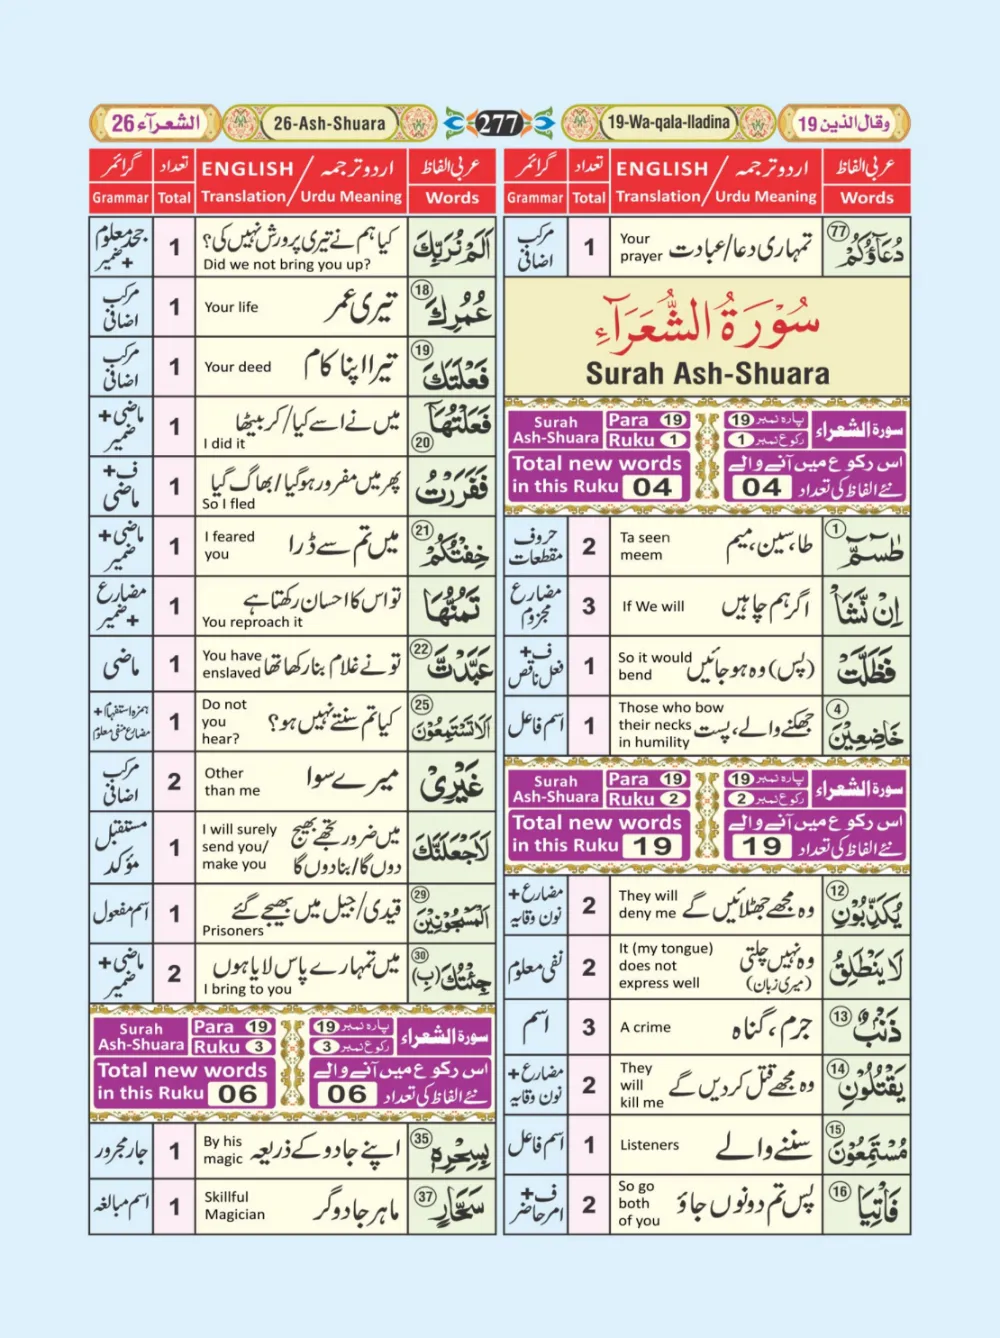 وقال الذين 19
19-Wa-qala-lladina
277
26-Ash-Shuara
الشعرآء 26
عربی الفاظ
اردو ترجمہ / ENGLISH
تعداد
گرائمر
Words
Translation / Urdu Meaning
Total
Grammar
دُعَآؤُكُمْ 77
تمہاری دعا/عبادت
Your
prayer
1
مرکب
اضافی
سُوْرَةُ الشُّعَرَآءِ
Surah Ash-Shuara
سورة الشعراء
پارہ نمبر 19
رکوع نمبر 1
Surah
Ash-Shuara
Para 19
Ruku 1
اس رکوع میں آنے والے
نئے الفاظ کی تعداد 04
Total new words
in this Ruku 04
طٰسٓمّٓ 1
طا، سین، میم
Ta seen
meem
2
حروف
مقطعات
اِنْ نَّشَاْ
اگر ہم چاہیں
If We will
3
مضارع
مجزوم
فَظَلَّتْ
(پس) وہ ہو جائیں
So it would
bend
1
ف+
فعل ناقص
خَاضِعِيْنَ 4
جھکنے والے، پست
Those who bow
their necks
in humility
1
اسم فاعل
سورة الشعراء
پارہ نمبر 19
رکوع نمبر 2
Surah
Ash-Shuara
Para 19
Ruku 2
اس رکوع میں آنے والے
نئے الفاظ کی تعداد 19
Total new words
in this Ruku 19
يُكَذِّبُوْنِ 12
وہ مجھے جھٹلائیں گے
They will
deny me
2
مضارع+
نون وقایہ
لَا يَنْطَلِقُ
وہ نہیں چلتی
(میری زبان)
It (my tongue)
does not
express well
2
نفی معلوم
ذَنْۢبٌ 13
جرم، گناہ
A crime
3
اسم
يَقْتُلُوْنِ 14
وہ مجھے قتل کر دیں گے
They
will
kill me
2
مضارع+
نون وقایہ
مُسْتَمِعُوْنَ 15
سننے والے
Listeners
1
اسم فاعل
فَاْتِيَا 16
پس تم دونوں جاؤ
So go
both
of you
2
ف+
امر حاضر
عربی الفاظ
اردو ترجمہ / ENGLISH
تعداد
گرائمر
Words
Translation / Urdu Meaning
Total
Grammar
اَلَمْ نُرَبِّكَ
کیا ہم نے تیری پرورش نہیں کی؟
Did we not bring you up?
1
جحد معلوم
+ ضمیر
عُمُرِكَ 18
تیری عمر
Your life
1
مرکب
اضافی
فَعْلَتَكَ 19
تیرا اپنا کام
Your deed
1
مرکب
اضافی
فَعَلْتُهَاۤ 20
میں نے اسے کیا/کر بیٹھا
I did it
1
ماضی+
ضمیر
فَفَرَرْتُ
پھر میں مفرور ہو گیا/بھاگ گیا
So I fled
1
ف+
ماضی
خِفْتُكُمْ 21
میں تم سے ڈرا
I feared
you
1
ماضی+
ضمیر
تَمُنُّهَا
تو اس کا احسان رکھتا ہے
You reproach it
1
مضارع
+ ضمیر
عَبَّدْتَّ 22
تو نے غلام بنا رکھا تھا
You have
enslaved
1
ماضی
اَلَا تَسْتَمِعُوْنَ 25
کیا تم سنتے نہیں ہو؟
Do not
you
hear?
1
ہمزہ استفہام+
مضارع منفی معلوم
غَيْرِيْ
میرے سوا
Other
than me
2
مرکب
اضافی
لَاَجْعَلَنَّكَ
میں ضرور تجھے بھیج
دوں گا/بنا دوں گا
I will surely
send you/
make you
1
مستقبل
مؤکد
الْمَسْجُوْنِيْنَ 29
قیدی/جیل میں بھیجے گئے
Prisoners
1
اسم مفعول
جِئْتُكَ (بِ) 30
میں تمہارے پاس لایا ہوں
I bring to you
2
ماضی+
ضمیر
سورة الشعراء
پارہ نمبر 19
رکوع نمبر 3
Surah
Ash-Shuara
Para 19
Ruku 3
اس رکوع میں آنے والے
نئے الفاظ کی تعداد 06
Total new words
in this Ruku 06
بِسِحْرِهٖ 35
اپنے جادو کے ذریعہ
By his
magic
1
جار مجرور
سَحَّارٍ 37
ماہر جادوگر
Skillful
Magician
1
اسم مبالغہ